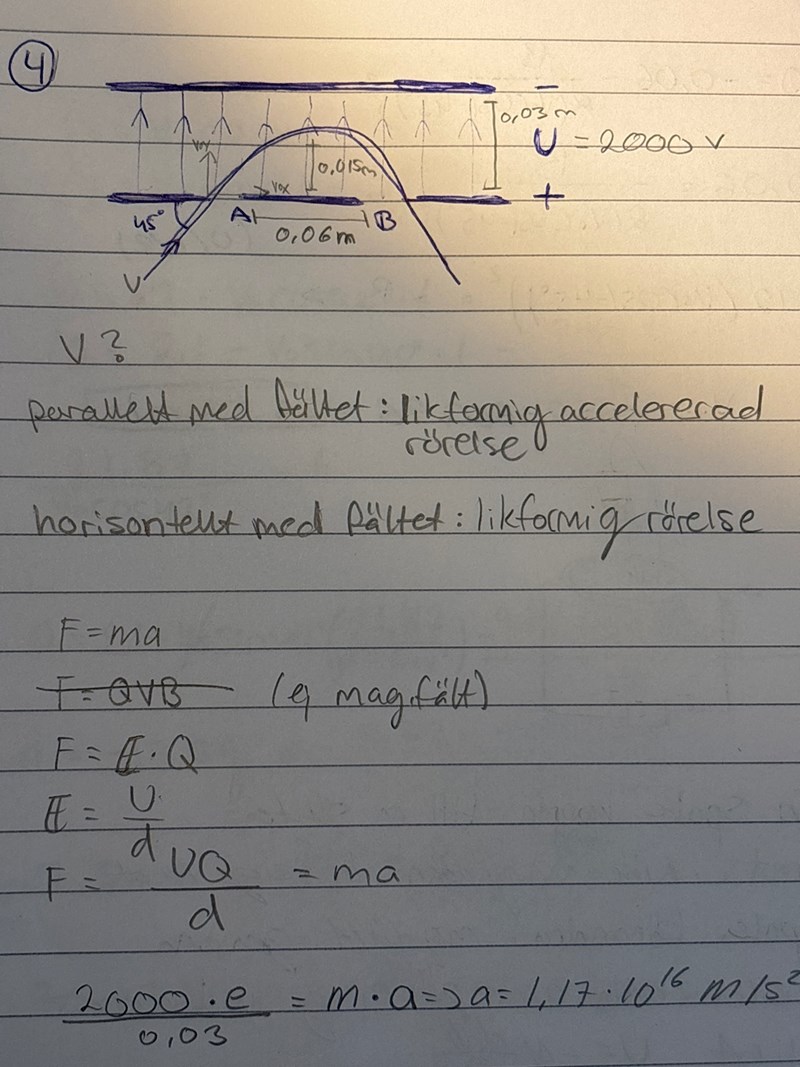 4
−
0,03 m
U = 2000 V
voy
0,015m
vox
+
45°
A
B
0,06 m
V
V?
parallellt med fältet: likformig accelererad
rörelse
horisontellt med fältet: likformig rörelse
F = ma
F = QVB (ej mag.fält)
F = E · Q
E = U/d
F = UQ/d = ma
2000 · e/0,03 = m · a => a = 1,17 · 10¹⁶ m/s²